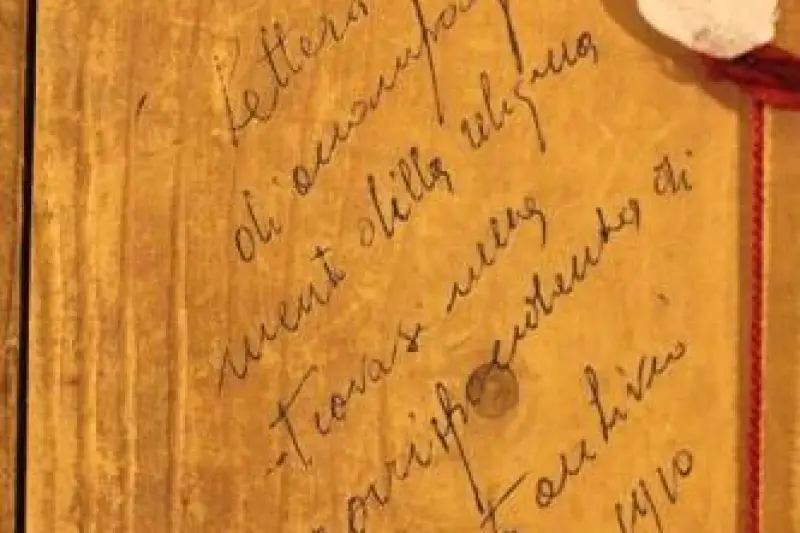 Lettera
di accompag
mento della reliquia
trovasi nella
corrispondenza di
archivio
1910